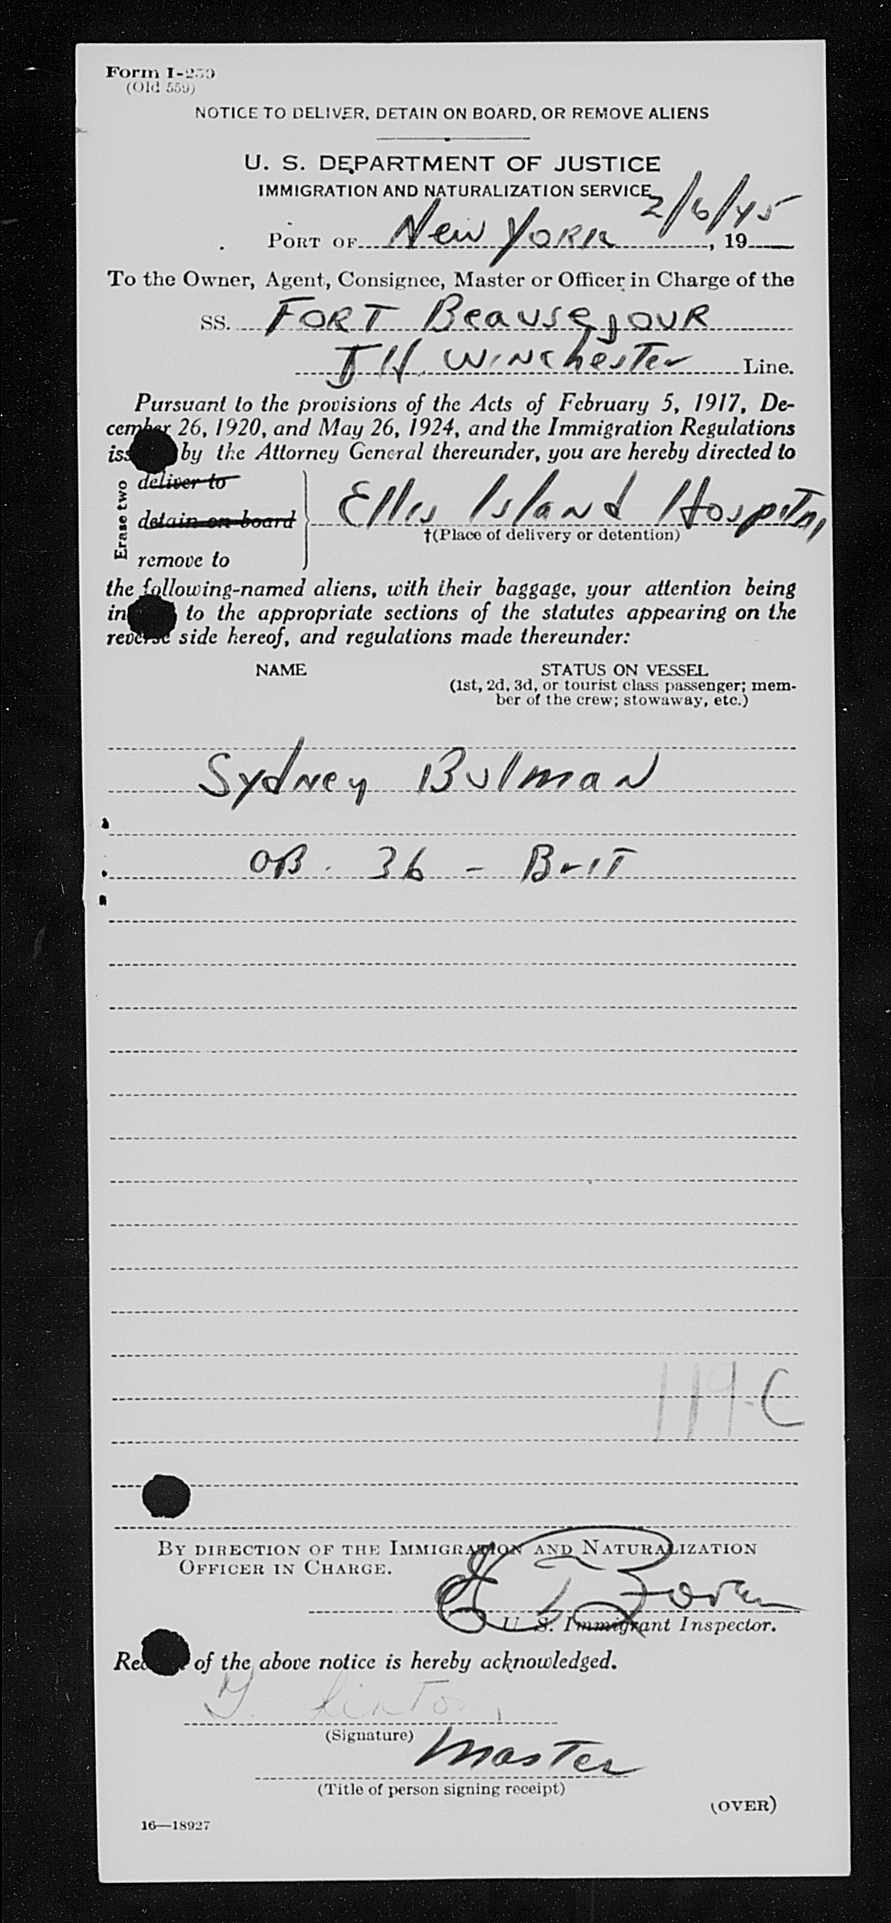 Form I-259
(Old 559)
NOTICE TO DELIVER, DETAIN ON BOARD, OR REMOVE ALIENS
U. S. DEPARTMENT OF JUSTICE
IMMIGRATION AND NATURALIZATION SERVICE
2/6/45
PORT OF New York, 19
To the Owner, Agent, Consignee, Master or Officer in Charge of the
SS. FORT Beausejour
J H. Winchester Line.
Pursuant to the provisions of the Acts of February 5, 1917, De-
cember 26, 1920, and May 26, 1924, and the Immigration Regulations
iss by the Attorney General thereunder, you are hereby directed to
Erase two
deliver to
detain on board
remove to
Ellis Island Hospital
†(Place of delivery or detention)
the following-named aliens, with their baggage, your attention being
in to the appropriate sections of the statutes appearing on the
reverse side hereof, and regulations made thereunder:
NAME STATUS ON VESSEL
(1st, 2d, 3d, or tourist class passenger; mem-
ber of the crew; stowaway, etc.)
Sydney Bulman
OB. 36 - Brit
119-C
BY DIRECTION OF THE IMMIGRATION AND NATURALIZATION
OFFICER IN CHARGE.
U. S. Immigrant Inspector.
Rec of the above notice is hereby acknowledged.
(Signature)
Master
(Title of person signing receipt)
(OVER)
16—18927